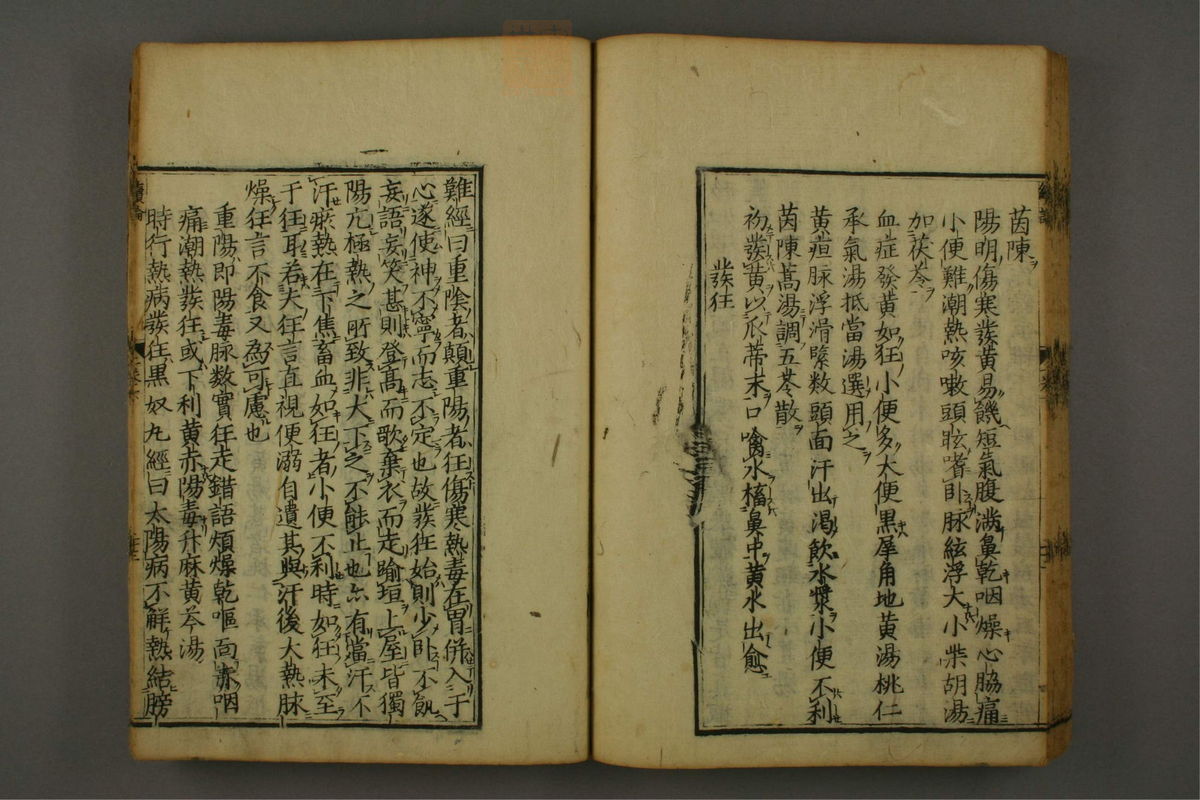 茵陳
陽明傷寒發黃易饑短氣腹満鼻乾咽燥心脇痛
小便難潮熱咳嗽頭眩嗜卧脉絃浮大小柴胡湯
加茯苓
血症發黃如狂小便多大便黒犀角地黃湯桃仁
承氣湯抵當湯選用之
黃疸脉浮滑緊数頭面汗出渇飲水漿小便不利
茵陳蒿湯調五苓散
初發黃以瓜蒂末口噙水搐鼻中黃水出愈
發狂
難經曰重陰者顛重陽者狂傷寒熱毒在胃併入于
心遂使神不寧而志不定也故發狂始則少卧不飢
妄語妄笑甚則登高而歌棄衣而走踰垣上屋皆獨
陽亢極熱之所致非大下之不能止也亦有當汗不
汗瘀熱在下焦畜血如狂者小便不利時如狂未至
于狂耳若大狂言直視便溺自遺其與汗後大熱脉
燥狂言不食又為可慮也
重陽即陽毒脉数實狂走錯語煩燥乾嘔面赤咽
痛潮熱發狂或下利黃赤陽毒升麻黃芩湯
時行熱病發狂黒奴丸經曰太陽病不解熱結膀